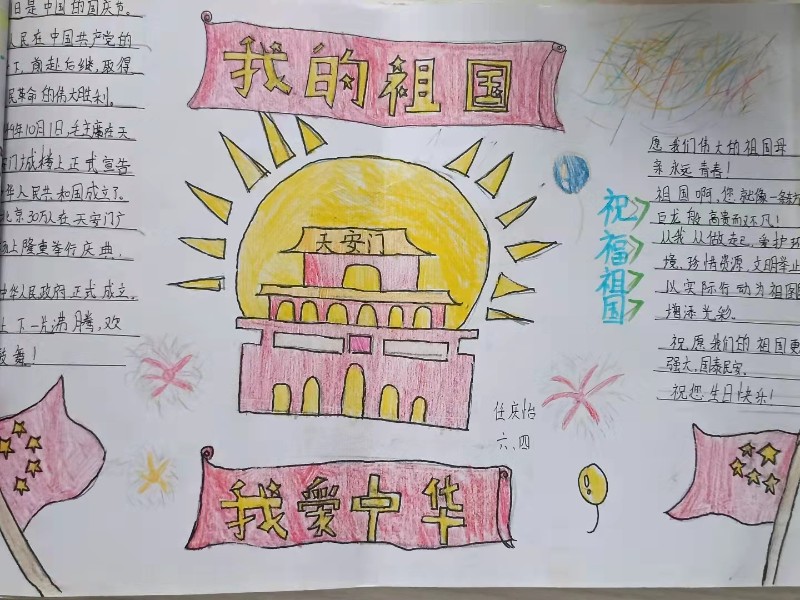 我的祖国
日是中国的国庆节。
人民在中国共产党的
前赴后继，取得
民革命的伟大胜利。
49年10月1日，毛主席在天
门城楼上正式宣告
华人民共和国成立了。
北京30万人在天安门广
场上隆重举行庆典。
中华人民政府正式成立。
上下一片沸腾，欢
鼓舞！
天安门
任庆怡
六、四
我爱中华
祝福祖国
愿我们伟大的祖国母
亲永远青春！
祖国啊，您就像一条
巨龙般高贵而不凡！
从我从做起，爱护环
境，珍惜资源，文明举止
以实际行动为祖国
增添光彩。
祝愿我们的祖国更
强大，国泰民安。
祝您生日快乐！